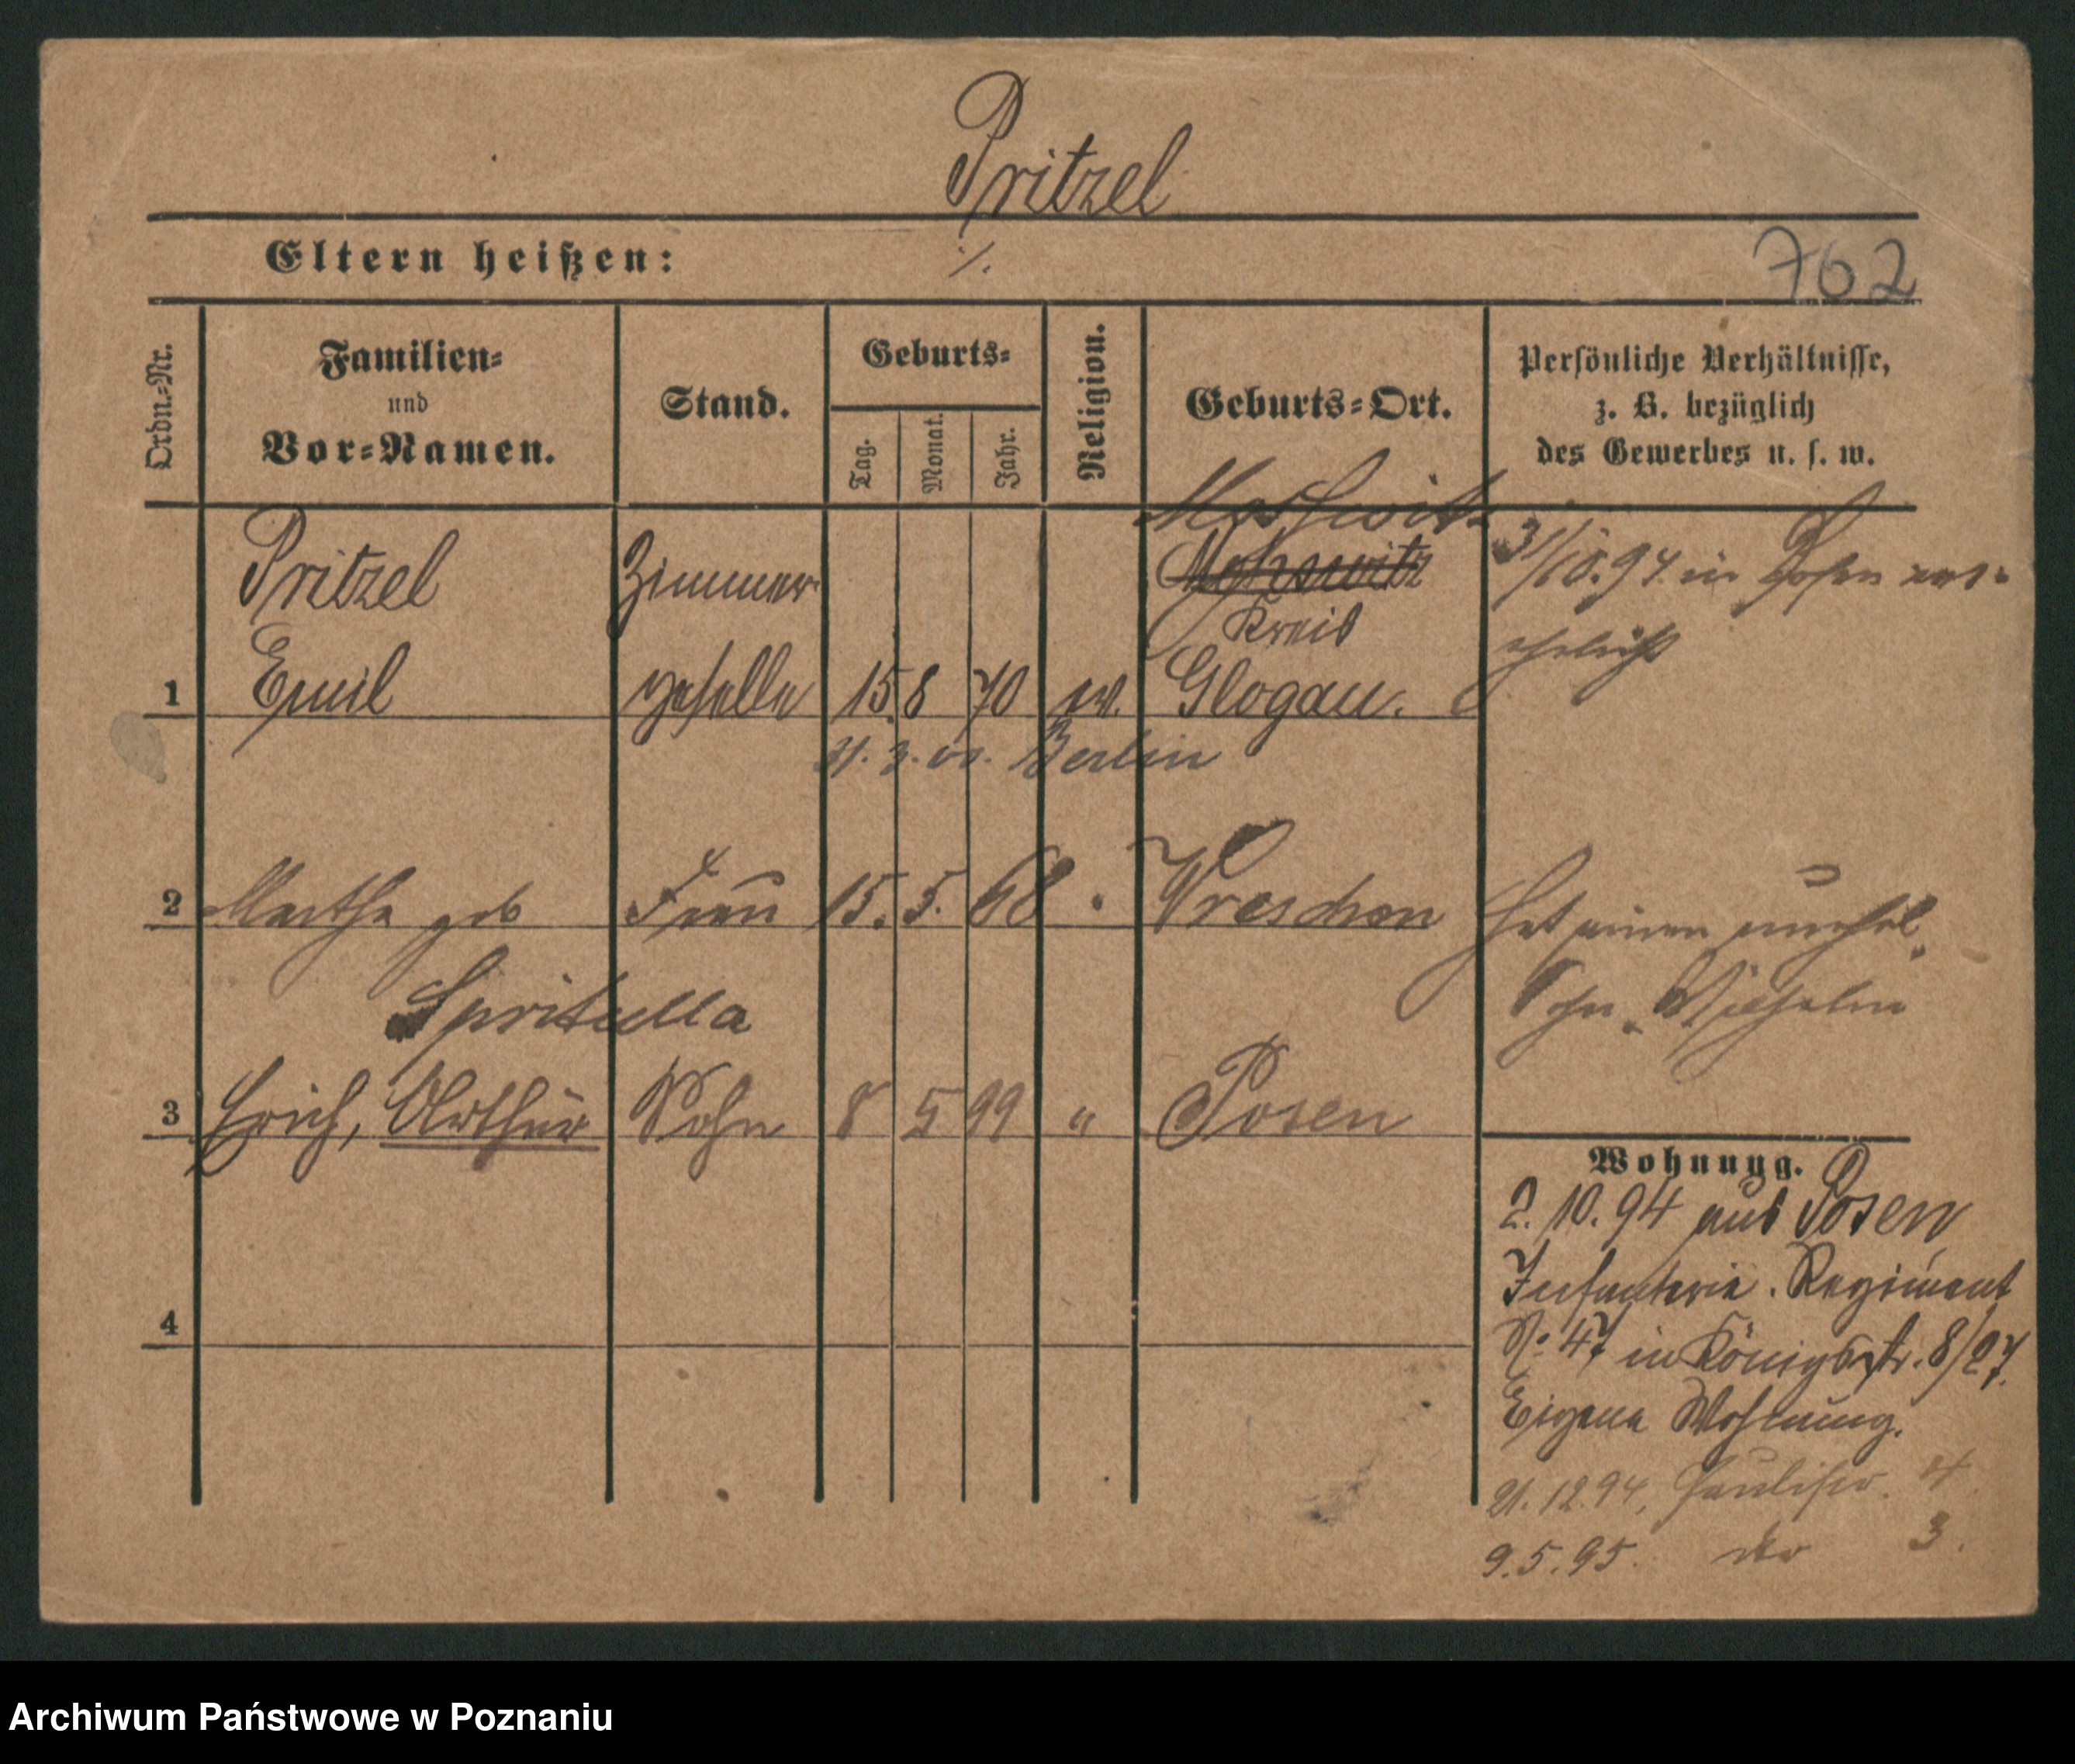 Pritzel
Eltern heißen: ./.
762
Ordn.-Nr.
Familien-
und
Vor-Namen.
Stand.
Geburts-
Tag.
Monat.
Jahr.
Religion.
Geburts-Ort.
Persönliche Verhältnisse,
z. B. bezüglich
des Gewerbes u. s. w.
Pritzel Zimmer
Kreis
1 Emil geselle 15. 8 70 ev. Glogau.
31/10.94. in Posen ver-
ehelicht
Berlin
2 Martha geb Frau 15. 5. 68 " Wreschen
Hat einen unehel.
Sohn
3 Erich, Arthur Sohn 8 5 99 " Posen
4
Wohnung.
2. 10. 94 aus Posen
Infanterie. Regiment
No. 47 in Königsstr. 8/27.
Eigene Wohnung.
21. 12. 94, 4
9. 5. 95. dto 3.
Archiwum Państwowe w Poznaniu